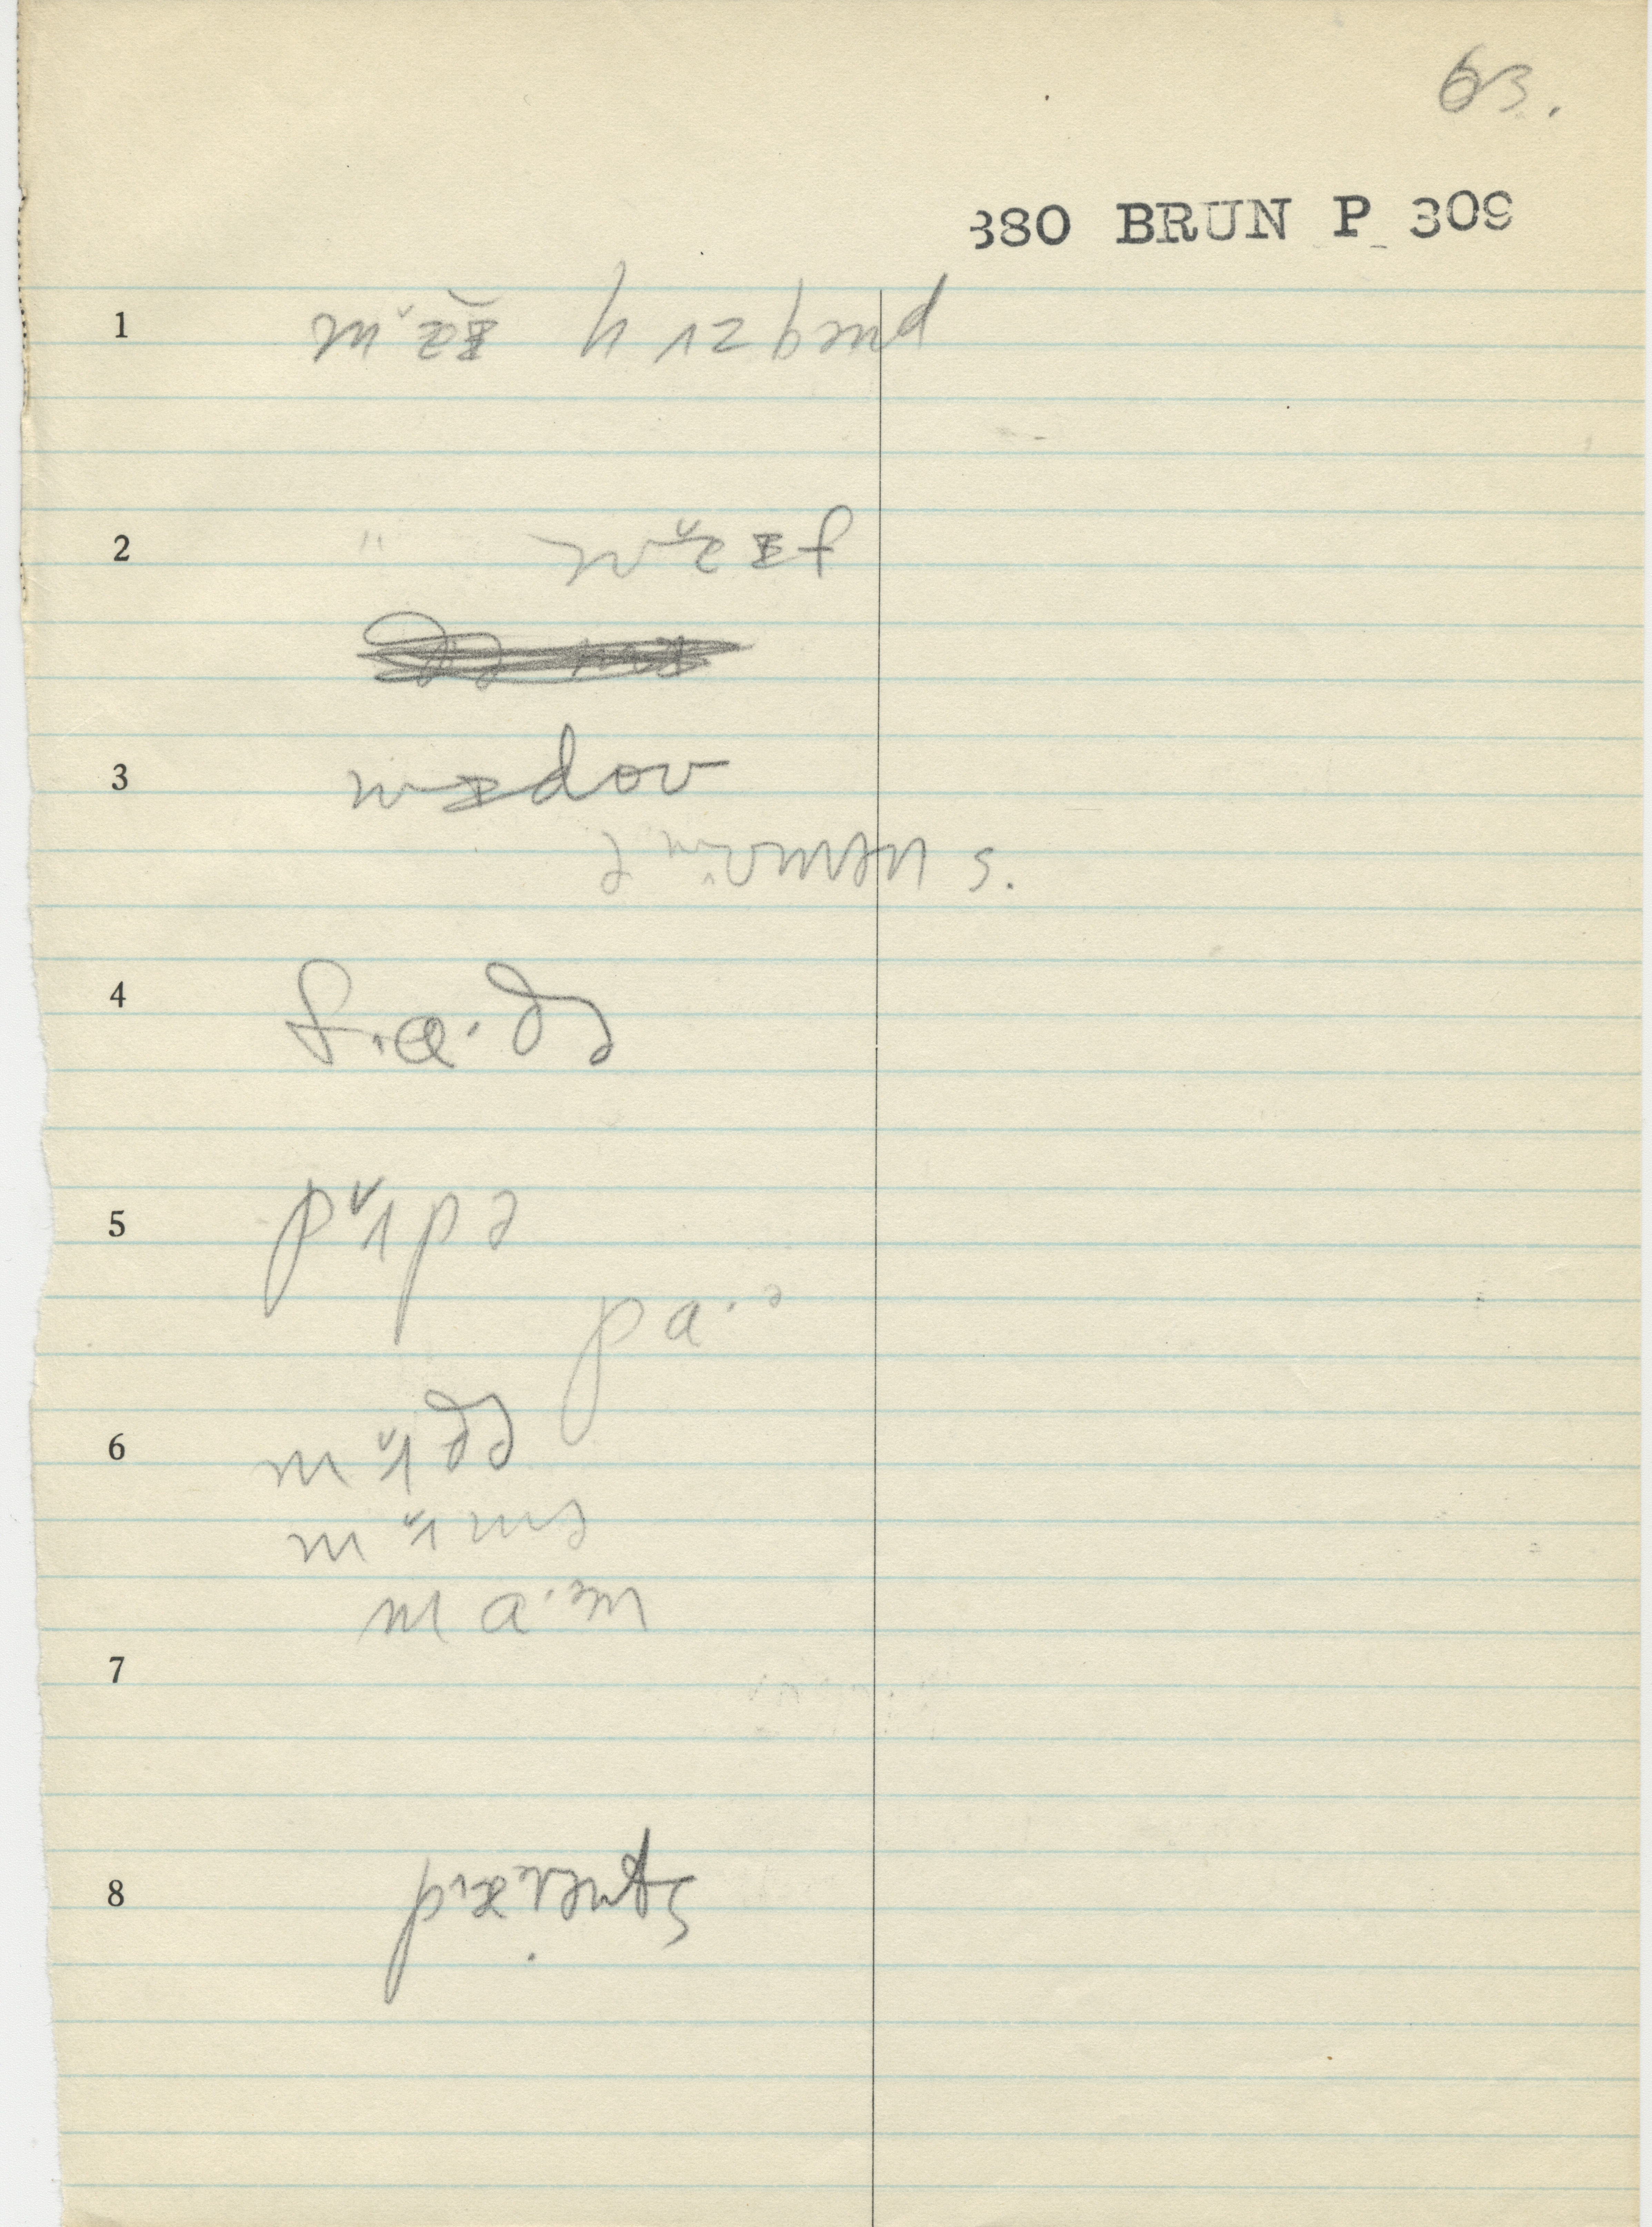 63.
880 BRUN P 309
1 mɐɪ hʌzbənd
2 " wɐɪf
3 wɪdoʊ
ə wʊmən s.
4 fɑ·ðə
5 pʌpə
pa·ə
6 mʌðə
mʌmə
ma·əm
7
8 pærənts